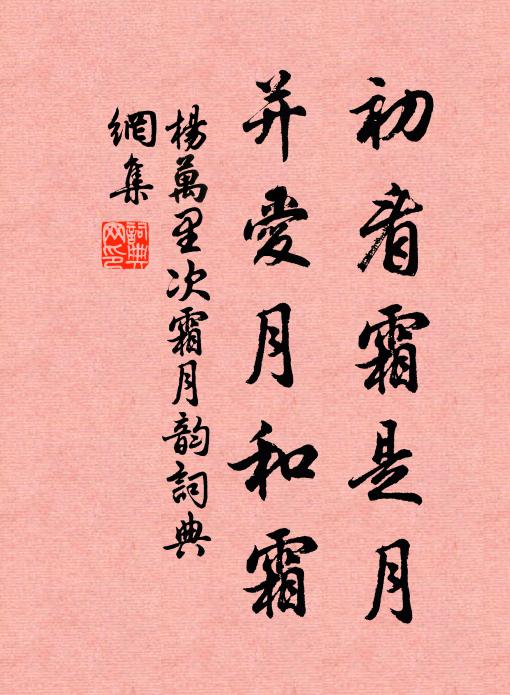 初看霜是月
并愛月和霜
楊萬里次霜月韵詞典
網集
詞典
网印